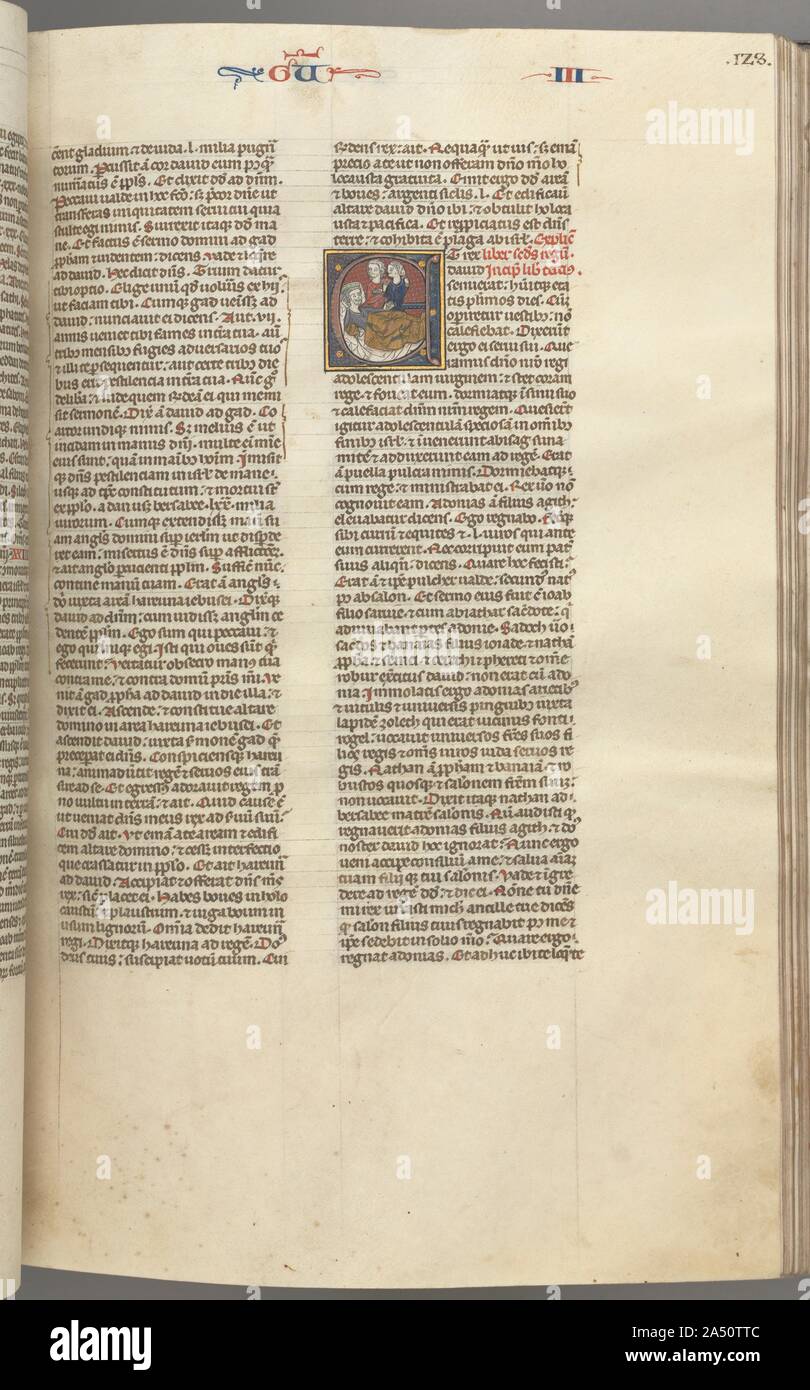 GU III .128.
cent gladium & de iuda .l. milia pugn
torum. Percussit a cor david eum p q
numatus e ppls. Et dixit dd ad dnm.
Peccaui ualde in hoc fco: s; pcor dne ut
transferas iniquitatem serui tui quia
stulte egi nimis. Surrexit itaq; dd ma
ne. Et factus e sermo domini ad gad
ppham & uidentem: dicens. Uade & loqre
ad david. Hec dicit dns. Trium datur
tibi optio. Elige unu qd uolu'is ex hii
ut faciam tibi. Cumq; gad uenisset ad
david: nunciauit ei dicens. Aut .vii.
annis ueniet tibi fames in tra tua. aut
trib; mensib; fugies aduersarios tuo
& illi te psequentur: aut certe trib; die
bus erit pestilencia in tra tua. Nunc g
delib'a & uide quem r'deam ei qui me mi
sit sermone. Dix a david ad gad. Co
artor undiq; nimis. S; melius e ut
incidam in manus dni. multe ei mie
eius sunt: quam in manib; hoim. Imisit
q; dns pestilenciam in isrl de mane
usq; ad tps constitutum: & mortui st
ex pplo. a dan usq; bersabee .lxx. milia
uirorum. Cumq; extendisset manu su
am angls domini sup ierlm ut dispde
ret eam: misertus e dns sup afflictoe
& ait anglo pcucienti pplm. Sufficit nunc
contine manum tuam. Erat a angls
dni iuxta area hareuna iebusei. Dixq;
david ad dnm: cum uidisset anglm ce
dente pplm. Ego sum qui peccaui: &
ego qui iniq; egi. Isti qui oues sunt q
fecerunt: Vertatur obsecro man; tua
contra me: & contra domu pris mi. Ve
nit a gad ppha ad david in die illa: &
dixit ei. Ascende: & constitue altare
domino in area hareuna iebusei. Et
ascendit david: iuxta s'mone gad q
precepat ei dns. Conspiciensq; hareu
na: animaduertit rege & seruos eius tra
sire ad se. Et egressus adorauit regem p
no uultu in terra: & ait. Quid cause e
ut ueniat dns meus rex ad s'uu suu:
Cui dd ait. Ut emam a te aream & edifi
cem altare domino: & cesset interfectio
que crassatur in pplo. Et ait hareun
ad david: Accipiat & offerat dns ms
rex: sic placet ei. Habes boues in holo
caustu & plaustrum: & iuga boum in
usum lignorum. Omnia dedit hareun
regi. Dixitq; hareuna ad rege. Do
ds tuus: suscipiat uotu tuum. Cui
r'ndens rex: ait. Nequaq; ut uis: s; emam
precio a te ut non offeram dno mo ho
locausta gratuita. Emit ergo dd area
& boues: argenti siclis .l. Et edificau
altare david dno ibi: & obtulit holoca
usta & pacifica. Et repropiciatus est dns
terre: & cohibita e plaga ab isrl. Explic
Et rex liber scds regu.
david Incip lib tcius.
senuerat: h'uitq; eta
tis plurimos dies. Cuq;
opiretur uestib;: no
calefiebat. Dixerunt
ergo ei serui sui. Que
ramus dno nro regi
adolescentulam uirginem: & stet coram
rege & foueat eum. dormiatq; in sinu suo
& calefaciat dnm nrm regem. Quesierut
igitur adolescentula speciosam in omib;
finib; isrl: & inuenerunt abisag suna
mite & adduxerunt eam ad rege. Erat
a puella pulcra nimis. Dormiebatq;
cum rege: & ministrabat ei. Rex uo no
cognouit eam. Adonias a filius agith:
eleuabatur dicens. Ego regnabo. Fecitq;
sibi currus & equites & .l. uiros qui ante
eum currerent. Nec corripuit eum pat
suus aliqn: dicens. Quare hoc fecisti:
Erat a & ipe pulcher ualde: secund nat
p absalon. Et sermo eius fuit e ioab
filio saruie: & cum abiathar sacdote: q
adiuuabant ptes adonie. Sadoch uo
sacdos & banaias filius ioiade: & nathan
ppha: & semei & cerethi & pherethi & ome
robur exercitus david: non erat cu ado
nia. Immolatis ergo adonias arietib;
& uitulis & uniuersis pinguib; iuxta
lapide zoelech qui erat uicinus fonti
rogel: uocauit uniuersos fres suos fi
lios regis & oms uiros iuda seruos re
gis. Nathan a ppham & banaia & ro
bustos quosq; & salomonem frem suu:
non uocauit. Dixit itaq; nathan ad
bersabee matre salomonis. Nu audisti q
regnauerit adonias filius agith: & do
noster david hoc ignorat: Nunc ergo
ueni accipe consiliu a me: & salua aiaz
tuam filiiq; tui salomonis. Vade & ingre
dere ad rege dd: & dic ei. Nonne tu dne
mi rex iurasti mich ancille tue dices
q salomon filius tuus regnabit p me &
ipe sedebit in solio mo: Quare ergo
regnat adonias. Et adhuc ibi te loqnte
alamy
alamy
alamy
alamy
Image ID: 2A50TTC
www.alamy.com